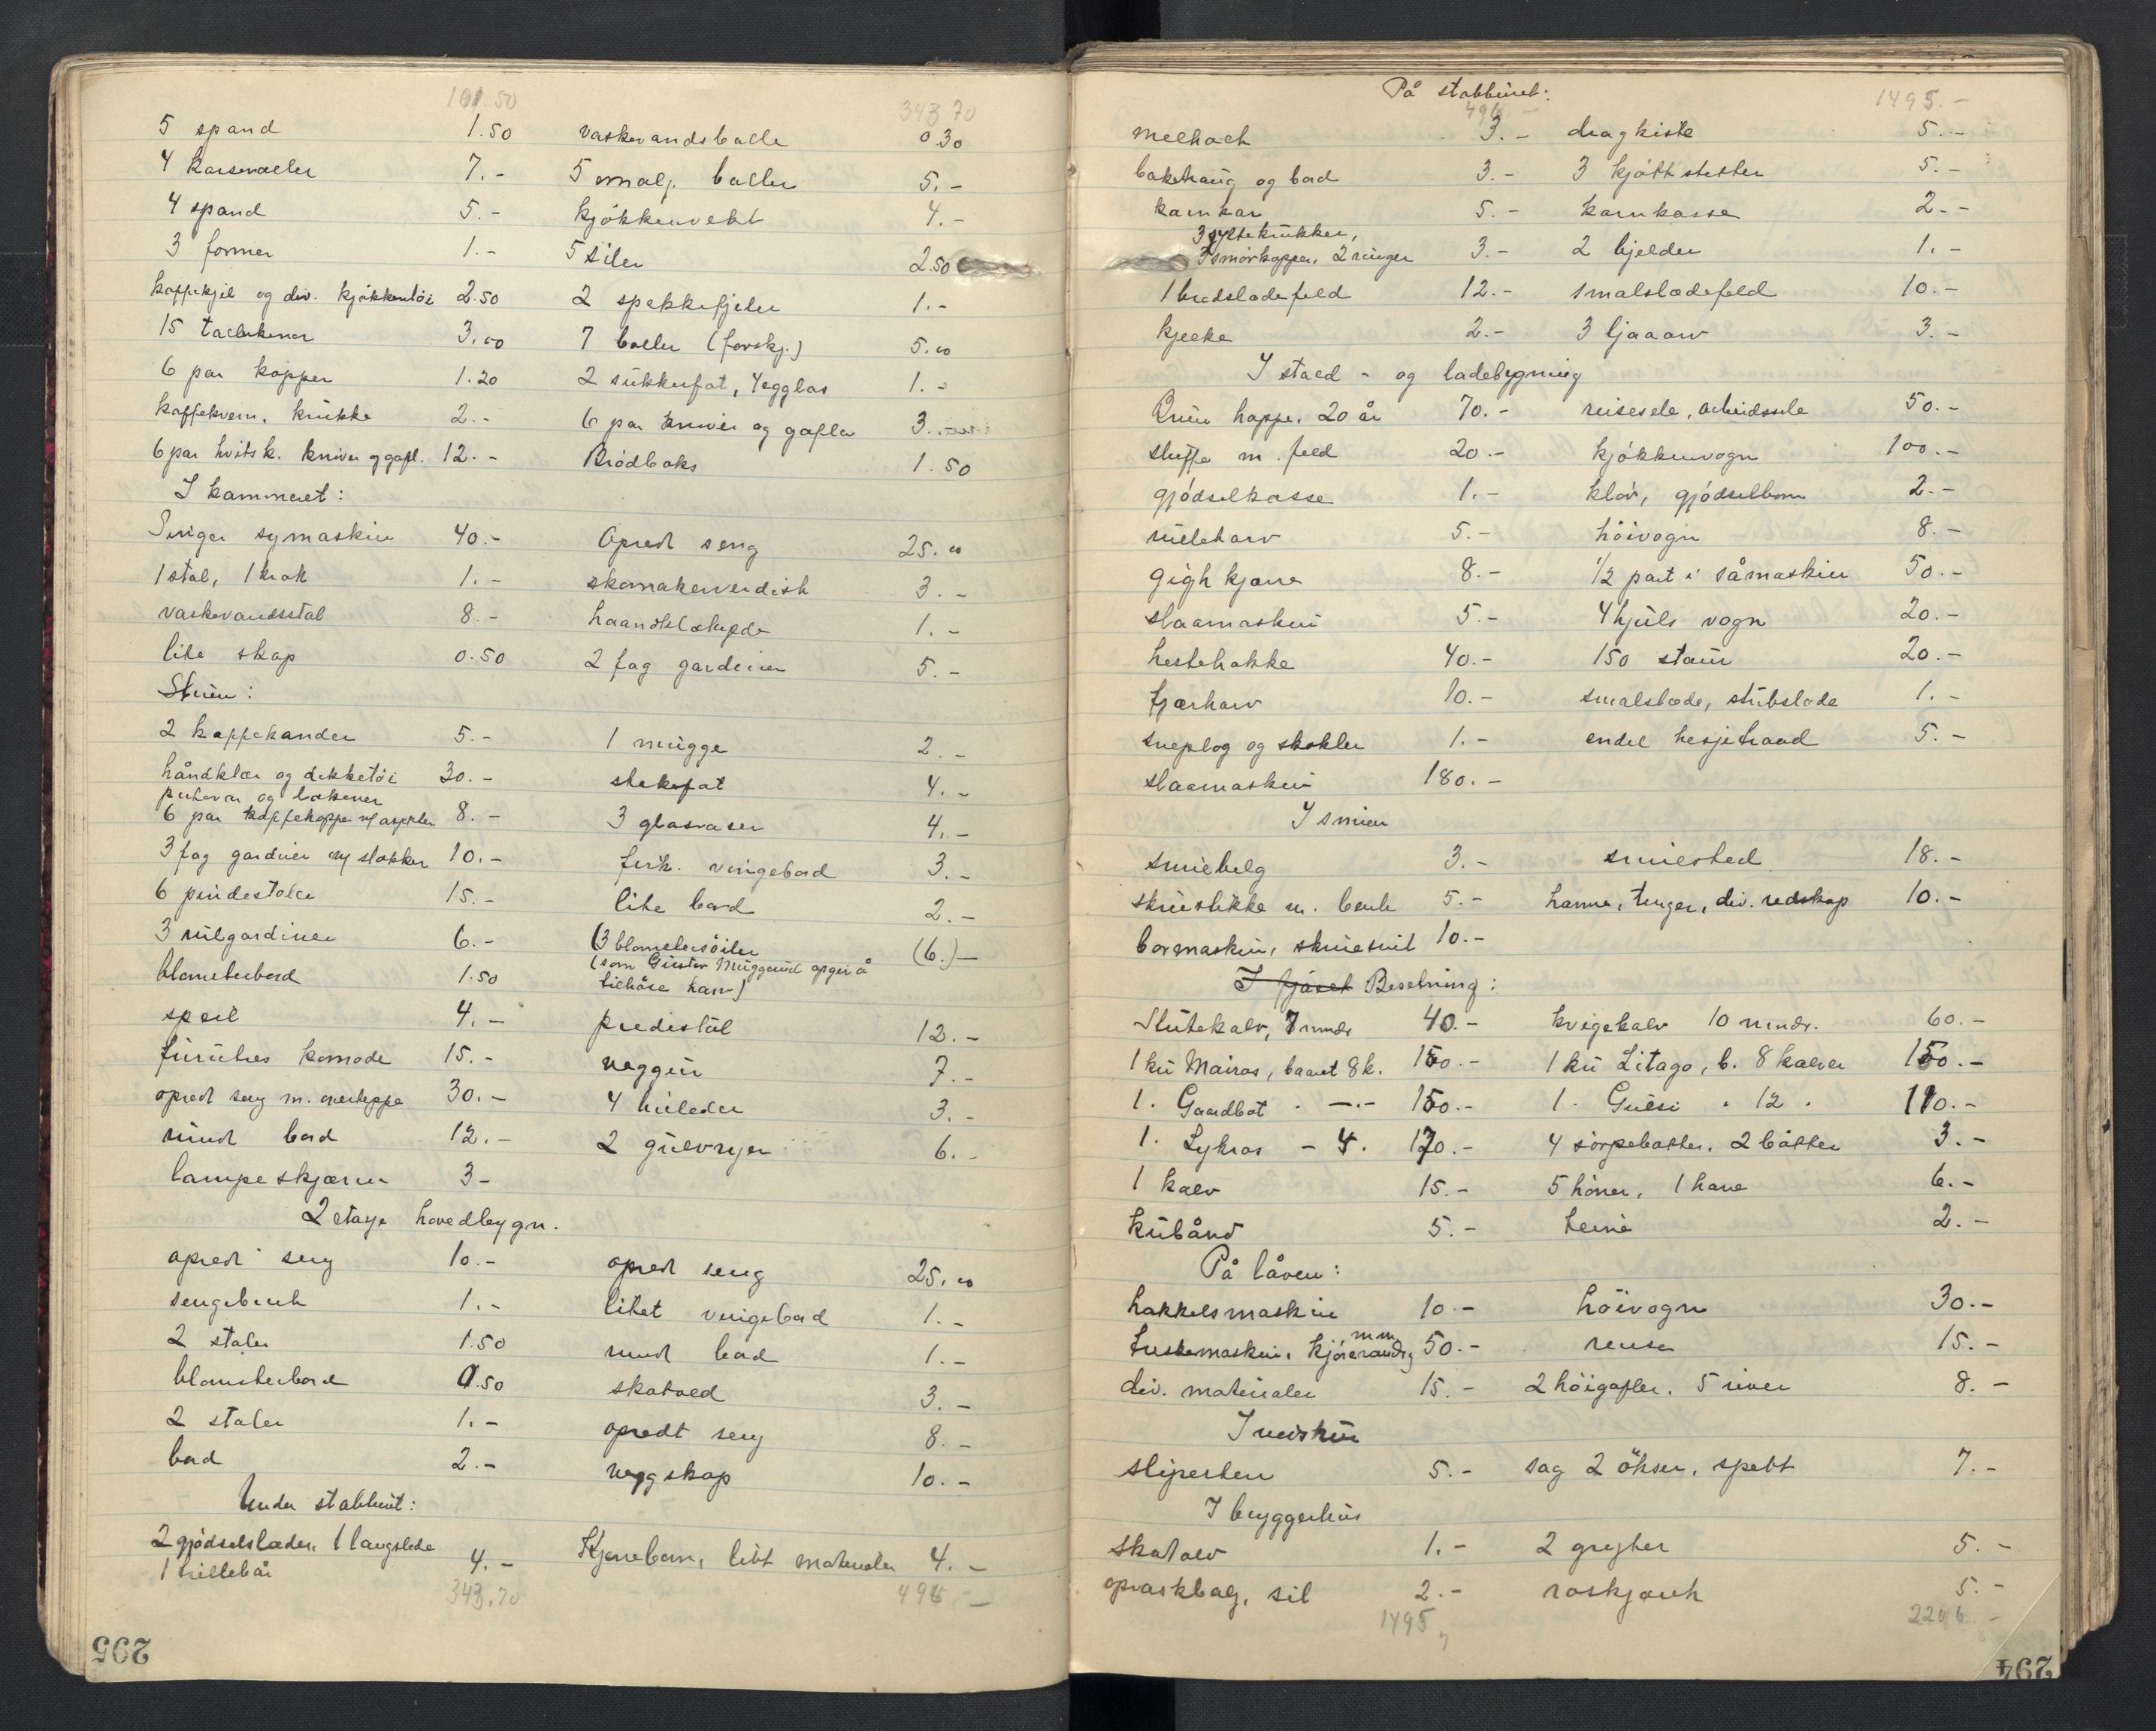 101.50 343 70
5 spand 1.50 vaskevandsballe 0.30
4 7.- 5 emalj. baller 5.-
4 spand 5.- kjøkkenvekt 4.-
3 former 1.- 5 siler 2.50
kaffekjel og div. kjøkkentøi 2.50 2 spekkefjeler 1.-
15 tallerkener 3.00 7 boller (forskj.) 5.00
6 par kopper 1.20 2 sukkerfat, 4 egglas 1.-
kaffekvern, krukke 2.- 6 par kniver og gafler 3.-
6 par hvitsk. kniver og gafl. 12.- Brødboks 1.50
I kammeret:
Singer symaskin 40.- Opredt seng 25.00
1 stol, 1 krak 1.- skomakerverdisk 3.-
vaskevandsstol 8.- 1.-
lite skap 0.50 2 fag gardiner 5.-
Stuen:
2 kaffekander 5.- 1 mugge 2.-
håndklær og dekketøi 30.- stekefat 4.-
putevar og lakener
6 par kaffekopper m/ asjetter 8.- 3 glasvaser 4.-
3 fag gardiner m/ stokker 10.- firk. vingebord 3.-
6 pindestoler 15.- lite bord 2.-
3 rulgardiner 6.- (3 blomstersøiler (6.)-
(som Gustav Muggerud opgir å
tilhøre ham)
blomsterbord 1.50
speil 4.- predistal 12.-
furutres komode 15.- veggur 7.-
opredt seng m. overteppe 30.- 4 bileder 3.-
rundt bord 12.- 2 gulvryer 6.-
lampeskjerm 3-
2 etage hovedbygn.
opredt seng 10.- opredt seng 25.00
sengebenk 1.- litet vingebord 1.-
2 stoler 1.50 rundt bord 1.-
blomsterbord 0.50 skatoll 3.-
2 stoler 1.- opredt seng 8.-
bord 2.- veggskap 10.-
Under stabburet:
2 gjødselslæder, 1 langslede
1 trillebår 4.- Kjerreborn, litt materialer 4.-
343.70 496 -
295
På stabburet:
496 - 1495.-
3.- dragkiste 5.-
baketraug og bord 3.- 3 kjøttstetter 5.-
kornkar 5.- kornkasse 2.-
3 syltekrukker,
3 smørkopper, 2 ringer 3.- 2 bjelder 1.-
1 bredsladefeld 12.- smalslædefeld 10.-
kjelke 2.- 3 ljaaorv 3.-
I stald- og ladebygning
Brun hoppe, 20 år 70.- reisesele, arbeidssele 50.-
sluffe m. feld 20.- kjøkkenvogn 100.-
gjødselkasse 1.- kløv, gjødselbom 2.-
rulleharv 5.- høivogn 8.-
gigh kjerre 8.- 1/2 part i såmaskin 50.-
slaamaskin 5.- 4 hjuls vogn 20.-
hestehakke 40.- 150 staur 20.-
fjærharv 10.- smalslæde, stubslæde 1.-
sneplog og skokler 1.- endel hesjetraad 5.-
slaamaskin 180.-
I smien
smiebelg 3.- smiested 18.-
skruestikke m. benk 5.- hamre, tenger, div. redskap 10.-
bormaskin, skruesnit 10.-
I fjøset Besetning:
Stutekalv, 7 mndr 40.- kvigekalv 10 mndr. 60.-
1 ku Mairos, baaret 8 k. 150.- 1 ku Litago, b. 8 kalver 150.-
1. Gaardbot . -.- 150.- 1. Gulsi . 12 . 110.-
1. Lykros - 4. 170.- 4 sørpebøtter, 2 bøtter 3.-
1 kalv 15.- 5 høner, 1 hane 6.-
kubånd 5.- teine 2.-
På låven:
hakkelsmaskin 10.- høivogn 30.-
treskemaskin, kjørerandr, m.m. 50.- rense 15.-
div. materialer 15.- 2 høigafler, 5 river 8.-
I vedskur
slipesten 5.- sag 2 økser, spett 7.-
I bryggerhus
skatoll 1.- 2 gryter 5.-
opvaskbalj, sil 2.- 5.-
1495,- 2246.-
294